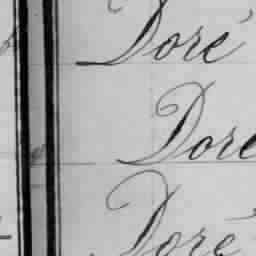 Doré
Doré
Doré